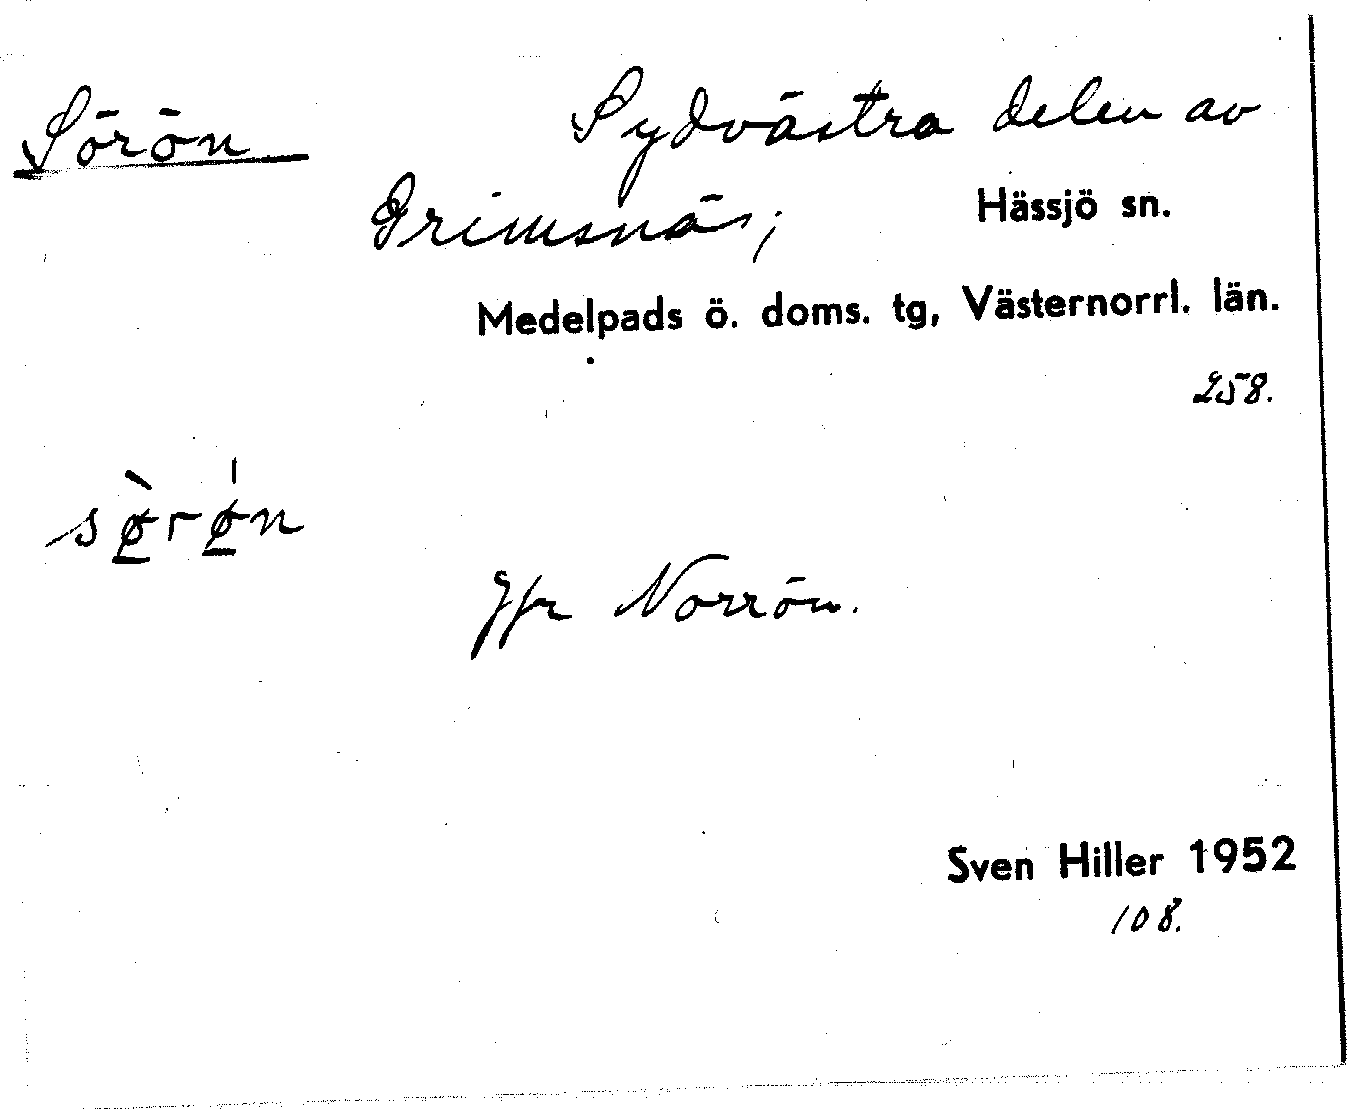 Sörön Sydvästra delen av
Grimsnäs; Hässjö sn.
Medelpads ö. doms. tg, Västernorrl. län.
258.
sø̀rø̍n
Jfr Norrön.
Sven Hiller 1952
108.